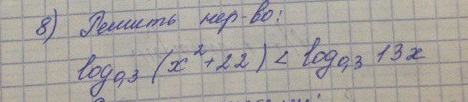 8) Решить нер-во:
log₀,₃ (x² + 22) < log₀,₃ 13x